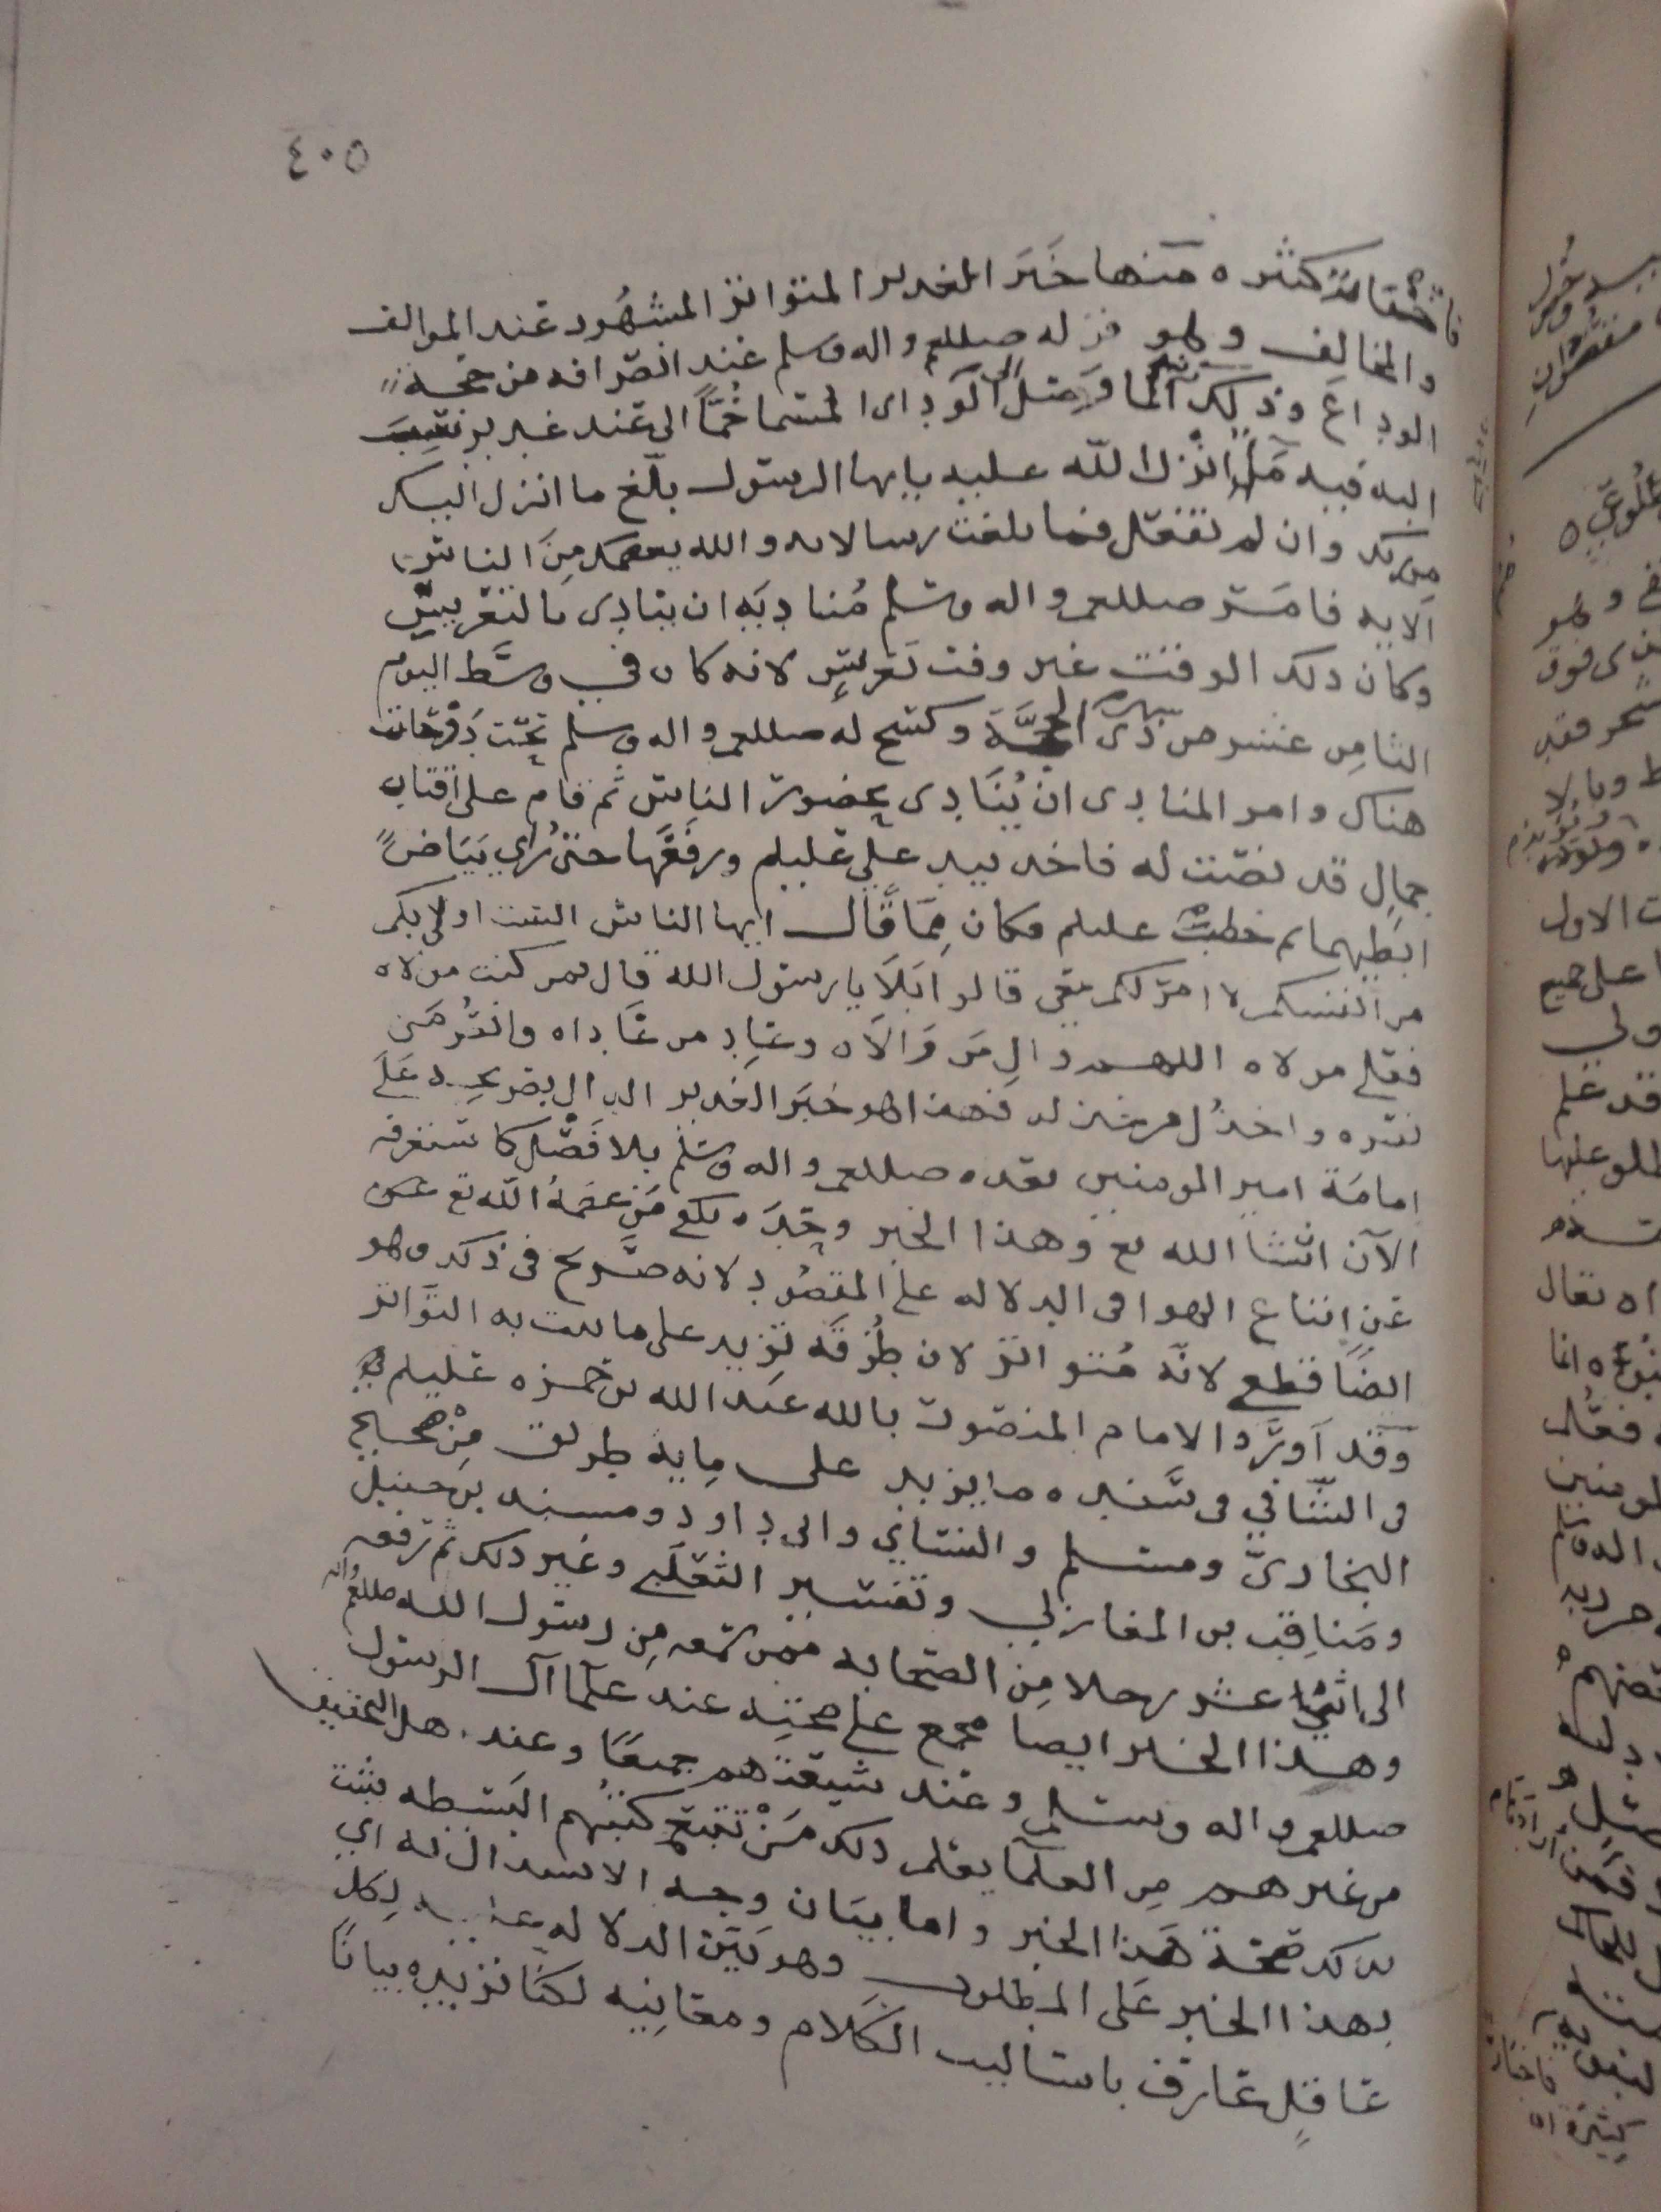 ٤٠٥
كثيره منها خبر الغدير المتواتر المشهور عند الموالف
والمخالف وهو قوله صللعم واله وسلم عند انصرافه من حجة
الوداع وذلك انه لما وصل الى الوادي المسما خما الى عند غدير
اليه فيه انزل الله عليه يايها الرسول بلغ ما انزل اليك
من ربك وان لم تفعل فما بلغت رسالاته والله يعصمك من الناس
الايه فامر صللعم واله وسلم مناديه ان ينادي بالتعريس
وكان ذلك الوقت غير وقت تعريس لانه كان في وسط اليوم
الثامن عشر من ذي الحجة وكسح له صللعم واله وسلم تحت دوحات
هناك وامر المنادي ان ينادي بحضور الناس ثم قام على اقتاب
جمال قد نصبت له فاخذ بيد علي عليلم ورفعها حتى رأي بياض
ابطيهما ثم خطب عليلم فكان مما قال ايها الناس الست اولى بكم
من انفسكم لا امر لكم معي قالوا بلا يا رسول الله قال فمن كنت مولاه
فعلي مولاه اللهم وال من والاه وعاد من عاداه وانصر من
نصره واخذل من خذله فهذا هو خبر الغدير الدال بصريحه على
امامة امير المومنين بعده صللعم واله وسلم بلا فصل كما ستعرفه
الآن انشا الله تع وهذا الخبر وحده يكفي من عصمه الله تع
عن اتباع الهوا في الدلاله على المقصود لانه صريح في ذلك وهو
ايضا قطعي لانه متواتر لان طرقه تزيد على ما يثبت به التواتر
وقد اورد الامام المنصور بالله عبد الله بن حمزه عليلم
في الشافي في سنده ما يزيد على مايه طريق من صحيح
البخاري ومسلم والنسائي وابي داود ومسند بن حنبل
ومناقب بن المغازلي وتفسير الثعلبي وغير ذلك ثم رفعه
الى اثني عشر رجلا من الصحابه ممن سمعه من رسول الله صللعم واله
وهذا الخبر ايضا مجمع على صحته عند علما آل الرسول
صللعم واله وسلم وعند شيعتهم جميعا وعند اهل التحقيق
من غيرهم من العلما يعلم ذلك من تتبع كتبهم البسيطه يثبت
بذلك صحة هذا الخبر واما بيان وجه الاستدلال به اي
بهذا الخبر على المطلوب وهو بين الدلاله عليه لكل
عاقل عارف باساليب الكلام ومعانيه لكنا نزيده بيانا